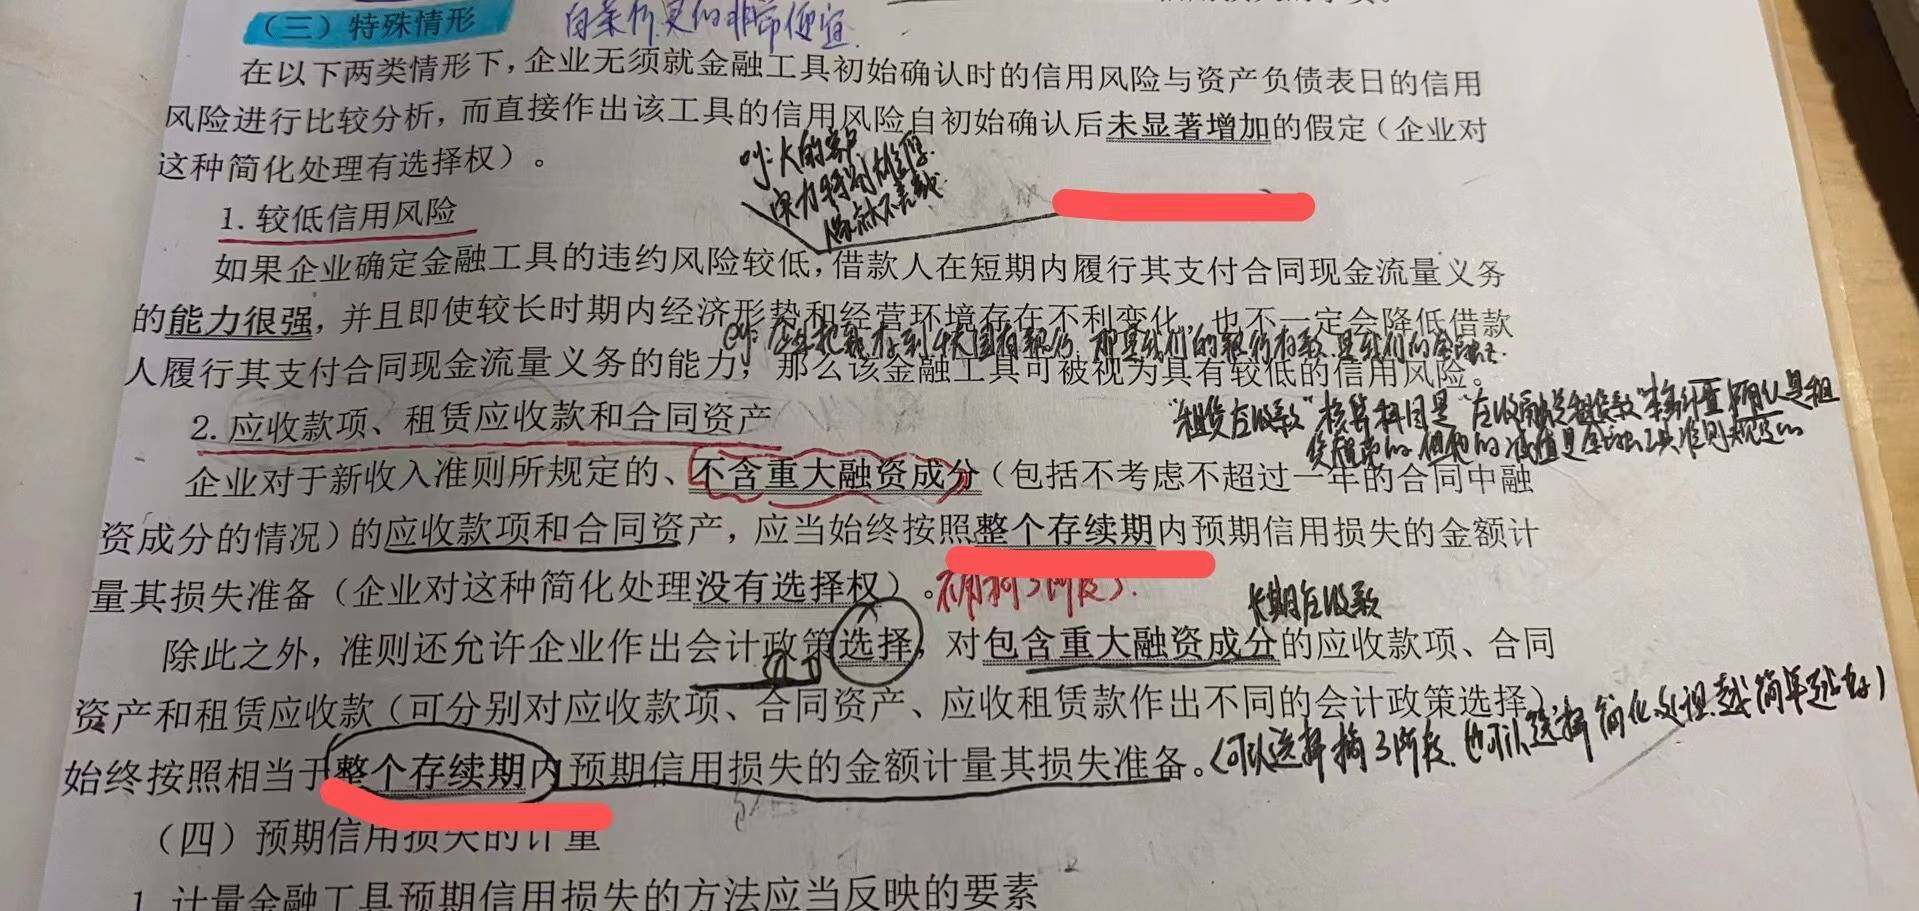 （三）特殊情形
在以下两类情形下，企业无须就金融工具初始确认时的信用风险与资产负债表日的信用
风险进行比较分析，而直接作出该工具的信用风险自初始确认后未显著增加的假定（企业对
这种简化处理有选择权）。
大的客户
实力特别雄厚
1. 较低信用风险
如果企业确定金融工具的违约风险较低，借款人在短期内履行其支付合同现金流量义务
的能力很强，并且即使较长时期内经济形势和经营环境存在不利变化，也不一定会降低借款
人履行其支付合同现金流量义务的能力，那么该金融工具可被视为具有较低的信用风险。
2. 应收款项、租赁应收款和合同资产
企业对于新收入准则所规定的、不含重大融资成分（包括不考虑不超过一年的合同中融
资成分的情况）的应收款项和合同资产，应当始终按照整个存续期内预期信用损失的金额计
量其损失准备（企业对这种简化处理没有选择权）。
长期应收款
除此之外，准则还允许企业作出会计政策选择，对包含重大融资成分的应收款项、合同
资产和租赁应收款（可分别对应收款项、合同资产、应收租赁款作出不同的会计政策选择）
始终按照相当于整个存续期内预期信用损失的金额计量其损失准备。
（可以选择搞3阶段，也可以选择简化处理，越简单越好）
（四）预期信用损失的计量
1. 计量金融工具预期信用损失的方法应当反映的要素